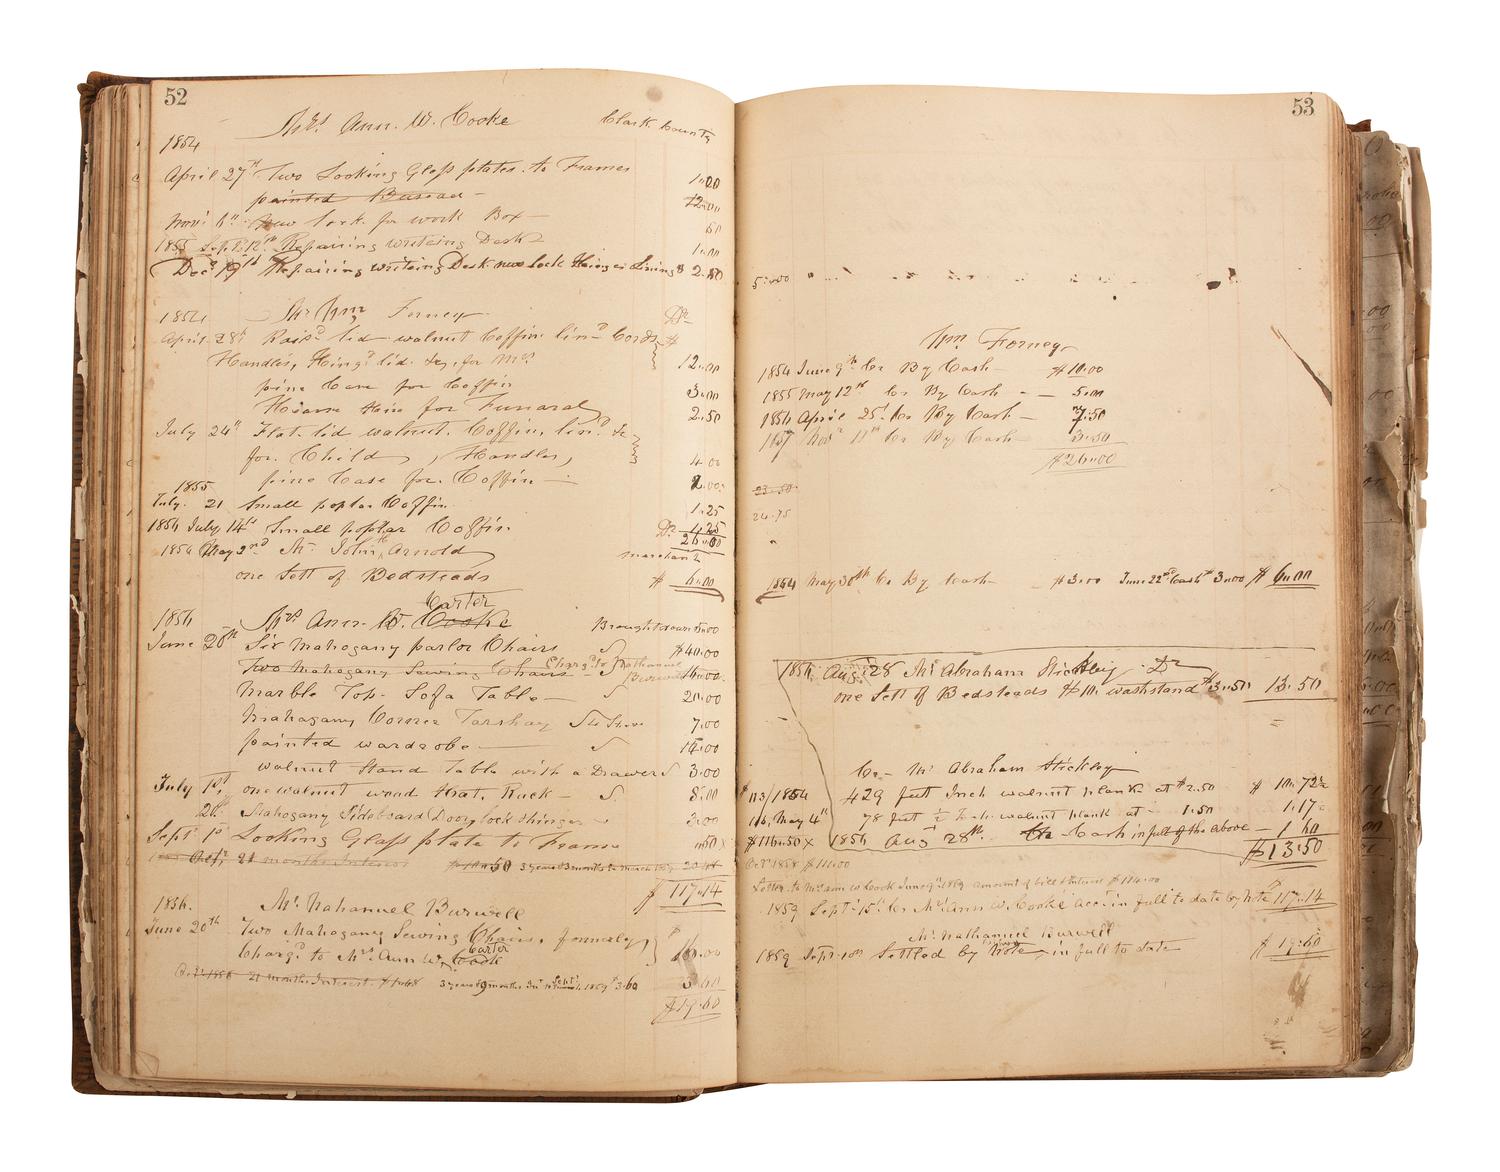 52
Mrs Ann. W. Cooke Clark County
1854
April 27th Two Looking Glass plates. to Frames 1.00
painted Bureau 12.00
Novr 6th New lock for work Box 50
1855 Sept 12th Repairing writeing Desk 1.00
Decr 19th Repairing writeing Desk new lock Hinges Lining $ 2.50
1854 Mr Wm Forney Dr
April 28th Raisd lid walnut Coffin lind Cords $
Handles, Hingd lid. &c, for Mrs 12.00
pine Case for Coffin 3.00
Hearse Hire for Funeral 2.50
July 24th Flat lid walnut. Coffin, lind &c
for Child, Handles, 4.00
pine Case for Coffin 2.00
1855
July. 21 Small poplar Coffin 1.25
1856 July, 14th Small poplar Coffin 1.25
Dr 26.00
1854 May 2nd Mr John Arnold merchant
one Sett of Bedsteads $ 6.00
Carter
1856 Mrs Ann. W. Cooke Brought down 5.00
June 20th Six Mahogany parlor Chairs $40.00
Two Mahogany Sewing Chairs Chargd to Nathaniel Burwell 16.00
Marble Top Sofa Table 20.00
Mahogany Corner 7.00
painted wardrobe 14.00
walnut Stand Table with a Drawer 3.00
July 1st, one walnut wood Hat, Rack 8.00
2d Mahogany Sideboard Door, lock & hinges 3.00
Sept 1st Looking Glass plate to Frame 50
Octr 21 months Interest 3 years & 3 months to March 1859
$ 117.14
1856. Mr Nathanuel Burwell
June 20th Two Mahogany Sewing Chairs, formerly
Carter
Chargd to Mrs Ann W. Cook 16.00
Oct 1858 21 months Interest 3 years & 9 months Int to Sept 1859 $3.60 3.60
$19.60
53
5.00
Wm Forney
1854 June 9th Cr By Cash $10.00
1855 May 12th Cr By Cash 5.00
1856 April 25th Cr By Cash 7.50
1857 Novr 11th Cr By Cash 3.50
$26.00
23.50
24.75
1854 May 30th Cr By Cash $3.00 June 22nd Cash $3.00 $ 6.00
1856 Aug 28 Mr Abraham Stickley Dr
one Sett of Bedsteads $10. washstand $3.50 13.50
Cr Mr Abraham Stickley
1854 429 feet Inch walnut plank at $2.50 $ 10.72½
May 4th 78 feet ½ Inch walnut plank at 1.50 1.17
$116.50 x 1856 Aug 28th. Cash in full of the above 1.60
$13.50
Octr 1858 $111.00
Letter to Mrs Ann W Cook June 9th 1859 amount of bill & Interest $114.00
1859 Sept 15th Cr Mrs Ann W. Cooke acct in full to date by Note 117.14
Mr Nathaniel Burwell
1859 Sept Settled by Note in full to date $ 19.60